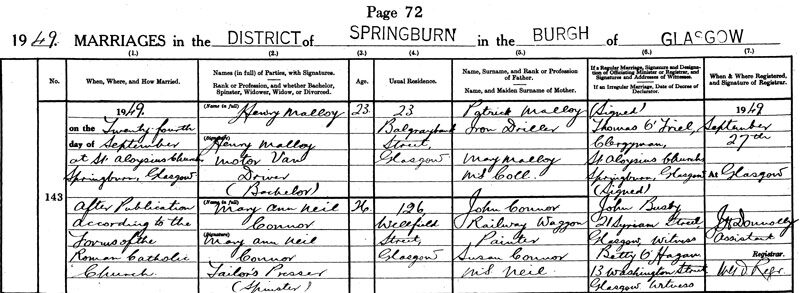 Page 72
1949. MARRIAGES in the DISTRICT of SPRINGBURN in the BURGH of GLASGOW
(1.) (2.) (3.) (4.) (5.) (6.) (7.)
No.
When, Where, and How Married.
Names (in full) of Parties, with Signatures.
Rank or Profession, and whether Bachelor,
Spinster, Widower, Widow, or Divorced.
Age.
Usual Residence.
Name, Surname, and Rank or Profession
of Father.
Name, and Maiden Surname of Mother.
If a Regular Marriage, Signature and Designa-
tion of Officiating Minister or Registrar, and
Signatures and Addresses of Witnesses.
If an Irregular Marriage, Date of Decree of
Declarator.
When & Where Registered,
and Signature of Registrar.
143
1949.
on the Twenty-fourth
day of September
at St. Aloysius Church
Springburn, Glasgow
After Publication
according to the
Forms of the
Roman Catholic
Church.
(Name in full)
Henry Malloy
(Signature)
Henry Malloy
Motor Van
Driver
(Bachelor)
23
23
Balgraybank
Street,
Glasgow
Patrick Malloy
Iron Driller
May Malloy
M.S. Coll.
(Name in full)
Mary Ann Neil
Connor
(Signature)
Mary Ann Neil
Connor
Tailor's Presser
(Spinster)
26
126
Wellfield
Street,
Glasgow
John Connor
Railway Waggon
Painter
Susan Connor
M.S. Neil
(Signed)
Thomas O'Friel,
Clergyman,
St Aloysius Church
Springburn, Glasgow
(Signed)
John Busby
21 Syriam Street
Glasgow, Witness
Betty O'Hagan
13 Washington Street
Glasgow Witness
1949
September
27th
At Glasgow
Donnolly
Assistant
Registrar.